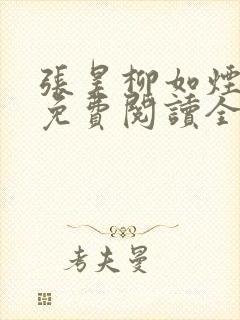 張昊柳如煙
免費閱讀全
考夫曼